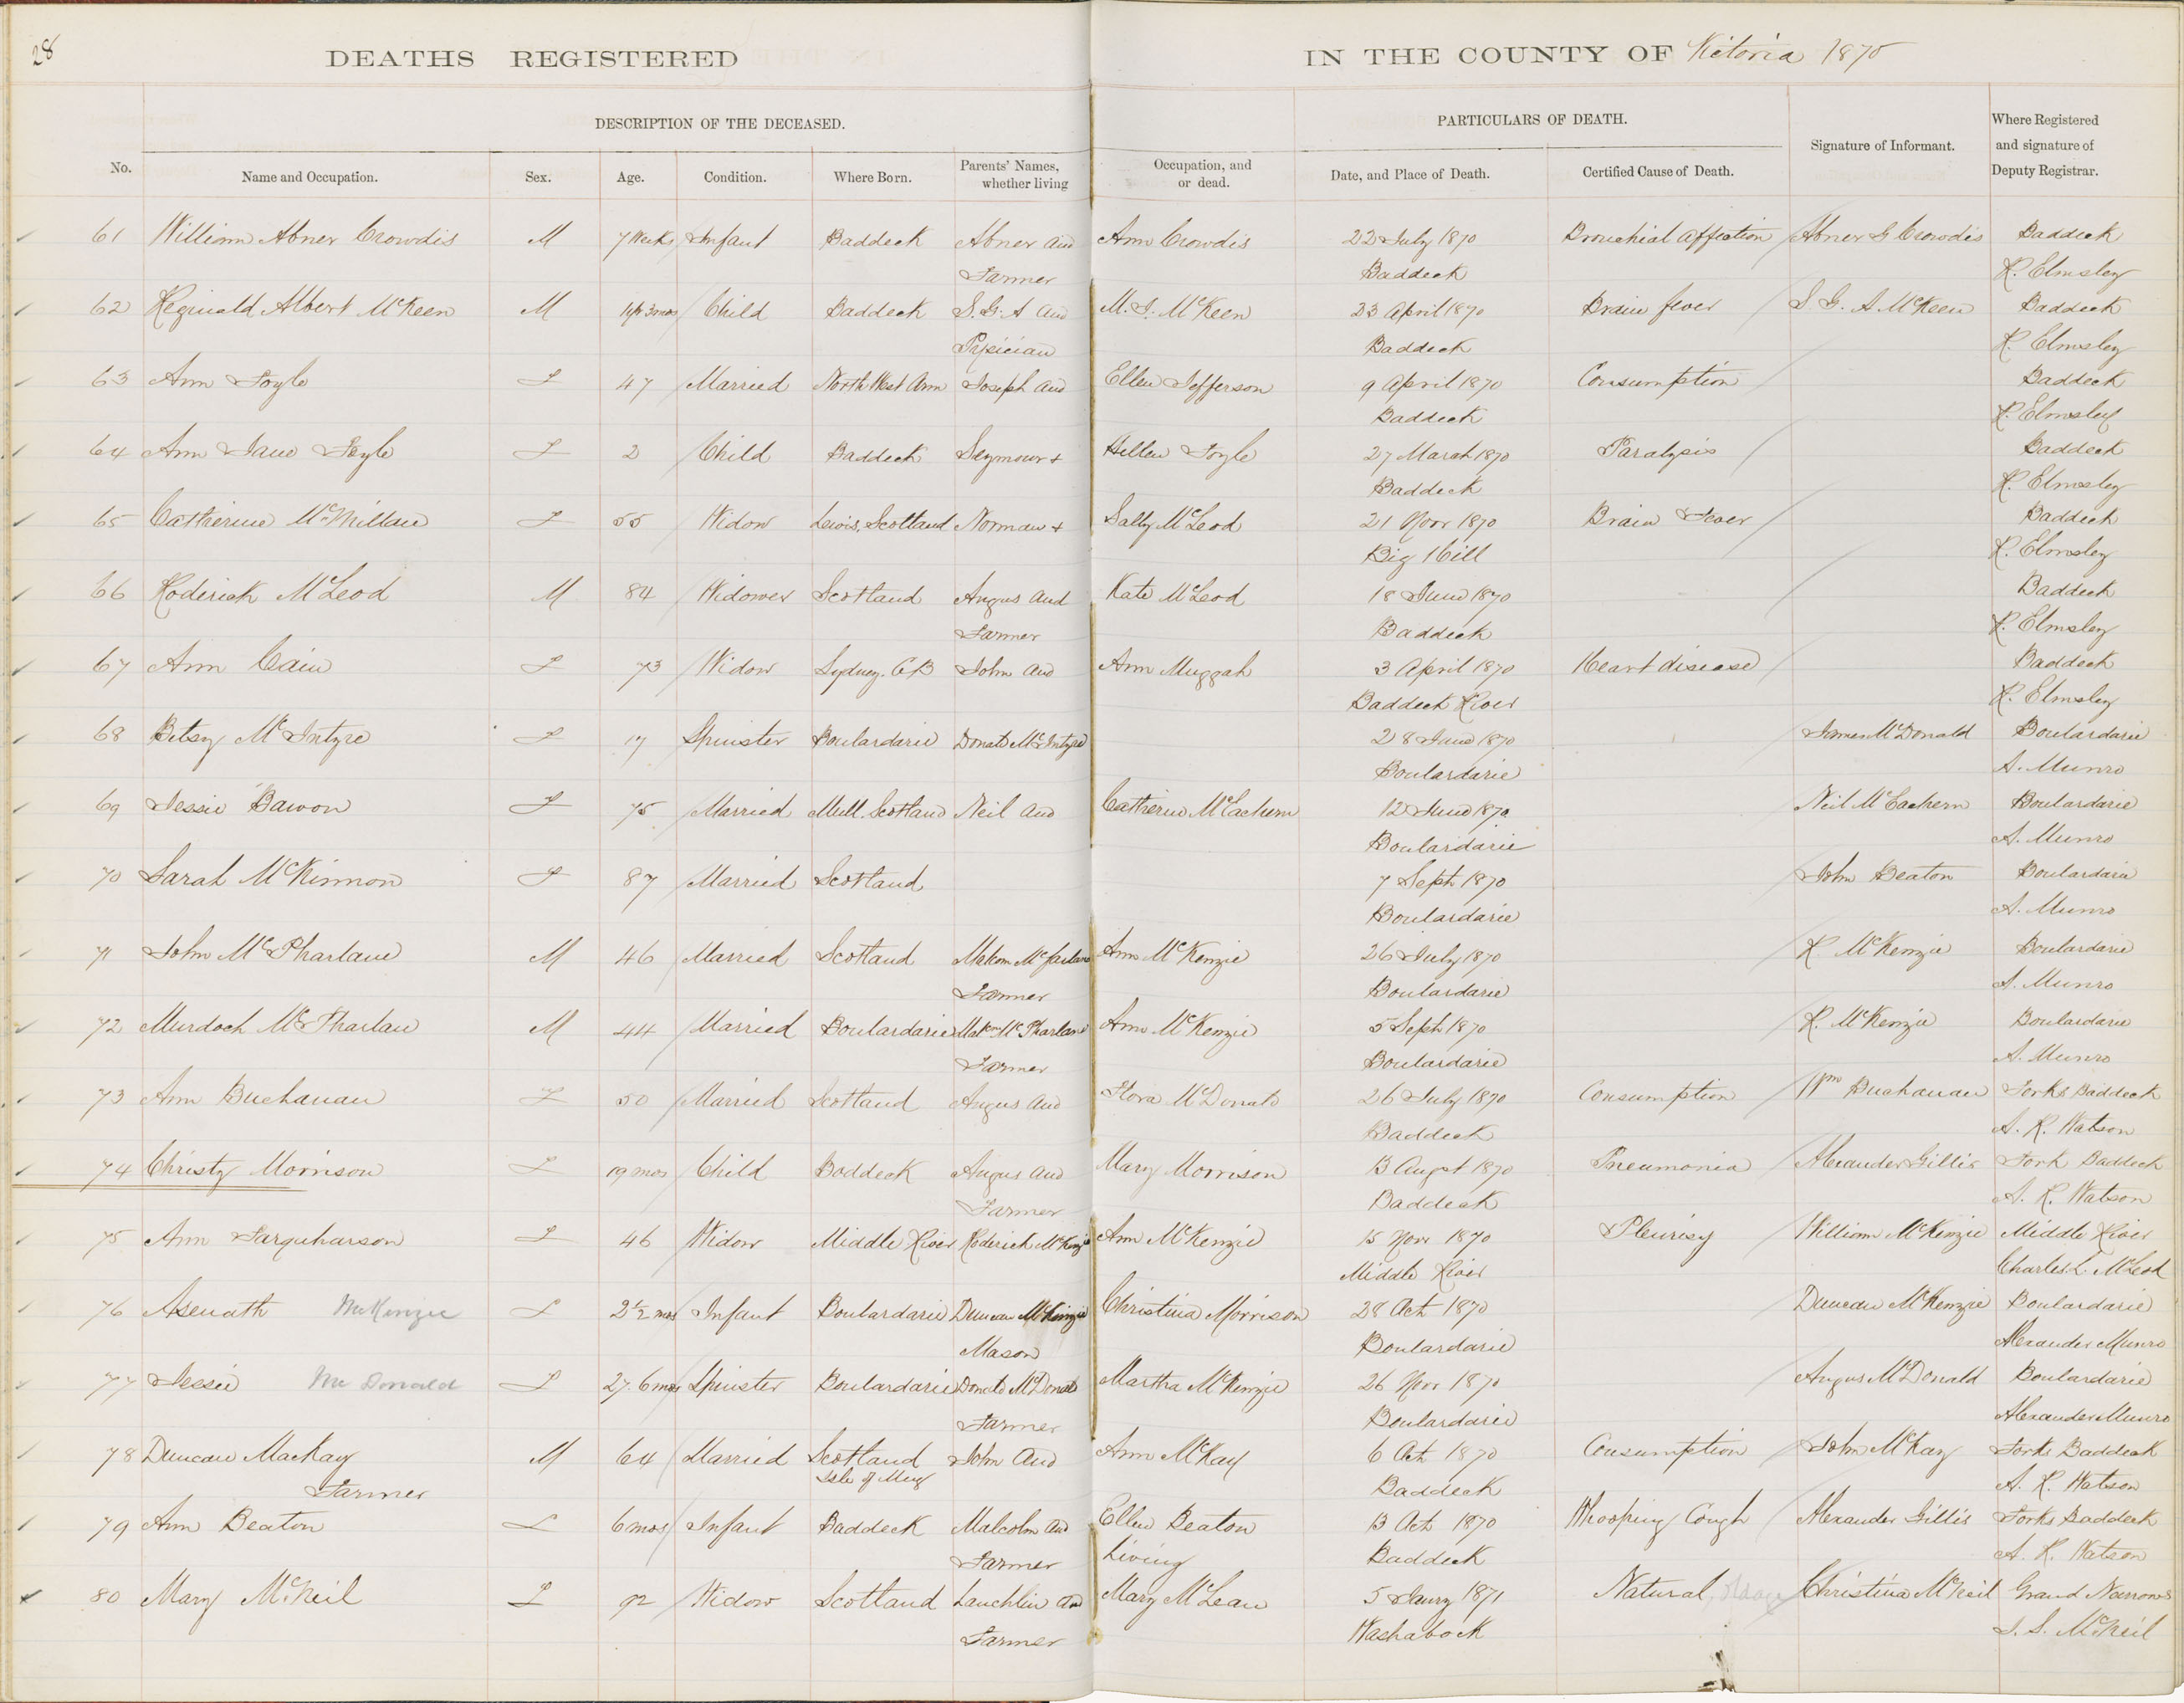 28
DEATHS REGISTERED IN THE COUNTY OF Victoria 1870
DESCRIPTION OF THE DECEASED. PARTICULARS OF DEATH. Signature of Informant. Where Registered and signature of Deputy Registrar.
No. Name and Occupation. Sex. Age. Condition. Where Born. Parents' Names, whether living Occupation, and or dead. Date, and Place of Death. Certified Cause of Death.
61 William Abner Crowdis M 7 Weeks Infant Baddeck Abner and Ann Crowdis 22 July 1870 Bronchial Affection Abner G Crowdis Baddeck
Farmer Baddeck R. Elmsley
62 Reginald Albert McKeen M 4yr 3mos Child Baddeck S. G. A and M. I. McKeen 23 April 1870 Brain fever S. G. A McKeen Baddeck
Pysician Baddeck R. Elmsley
63 Ann Foyle F 47 Married North West Arm Joseph and Ellen Jefferson 9 April 1870 Consumption Baddeck
Baddeck R. Elmsley
64 Ann Jane Foyle F 2 Child Baddeck Seymour + Hellen Foyle 27 March 1870 Paralysis Baddeck
Baddeck R. Elmsley
65 Catherine McMillan F 55 Widow Lewis, Scotland Norman + Sally McLeod 21 Novr 1870 Brain Fever Baddeck
Big Hill R. Elmsley
66 Roderick McLeod M 84 Widower Scotland Angus and Kate McLeod 18 June 1870 Baddeck
Farmer Baddeck R. Elmsley
67 Ann Cain F 73 Widow Sydney. C.B John and Ann Muggah 3 April 1870 Heart disease Baddeck
Baddeck River R. Elmsley
68 Betsy McIntyre F 17 Spinster Boulardarie Donald McIntyre 28 June 1870 James McDonald Boulardarie
Boulardarie A. Munro
69 Jessie Bawon F 75 Married Mull. Scotland Neil and Catherine McEachern 12 June 1870 Neil McEachern Boulardarie
Boulardarie A. Munro
70 Sarah McKinnon F 87 Married Scotland 7 Sept 1870 John Beaton Boulardarie
Boulardarie A. Munro
71 John McPharlane M 46 Married Scotland Malcom McFarlane Ann McKenzie 26 July 1870 R McKenzie Boulardarie
Farmer Boulardarie A. Munro
72 Murdoch McPharlan M 44 Married Boulardarie McPharlane Ann McKenzie 5 Sept 1870 R. McKenzie Boulardarie
Farmer Boulardarie A. Munro
73 Ann Buchanan F 50 Married Scotland Angus and Flora McDonald 26 July 1870 Consumption Wm Buchanan Forks Baddeck
Baddeck A. R. Watson
74 Christy Morrison F 19 mos Child Boddeck Angus and Mary Morrison 13 Augst 1870 Pneumonia Alexander Gillis Fork Baddeck
Farmer Baddeck A. R. Watson
75 Ann Farquharson F 46 Widow Middle River Roderick McKenzie Ann McKenzie 15 Novr 1870 Pleurisy William McKenzie Middle River
Middle River Charles L. McLeod
76 Asenath McKenzie F 2 1/2 mos Infant Boulardarie Duncan McKenzie Christina Morrison 28 Oct 1870 Duncan McKenzie Boulardarie
Mason Boulardarie Alexander Munro
77 Jessie McDonald F 27. 6 mos Spinster Boulardarie Donald McDonald Martha McKenzie 26 Novr 1870 Angus McDonald Boulardarie
Farmer Boulardarie Alexander Munro
78 Duncan Mackay M 64 Married Scotland John and Ann McKay 6 Oct 1870 Consumption John McKay Forks Baddeck
Farmer Isle of Baddeck A. R. Watson
79 Ann Beaton F 6 mos Infant Baddeck Malcolm and Ellen Beaton 13 Oct 1870 Whooping Cough Alexander Gillis Forks Baddeck
Farmer Living Baddeck A. R. Watson
80 Mary McNeil F 92 Widow Scotland Lauchlin and Mary McLean 5 Jany 1871 Natural Christina McNeil Grand Narrows
Farmer Washabock McNeil